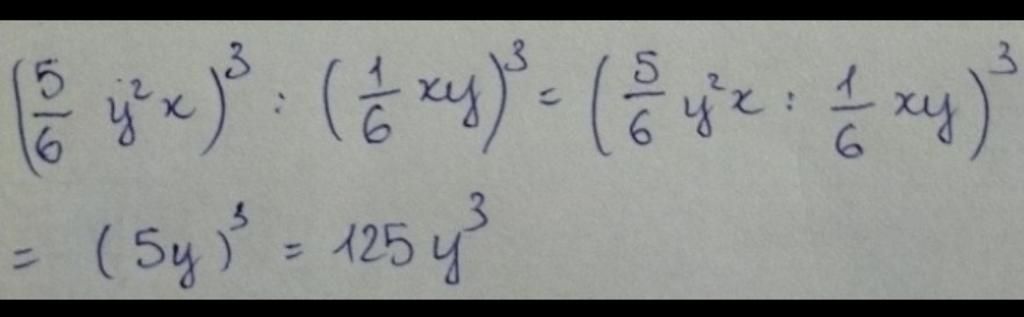 (5/6 y²x)³ : (1/6 xy)³ = (5/6 y²x : 1/6 xy)³
= (5y)³ = 125y³